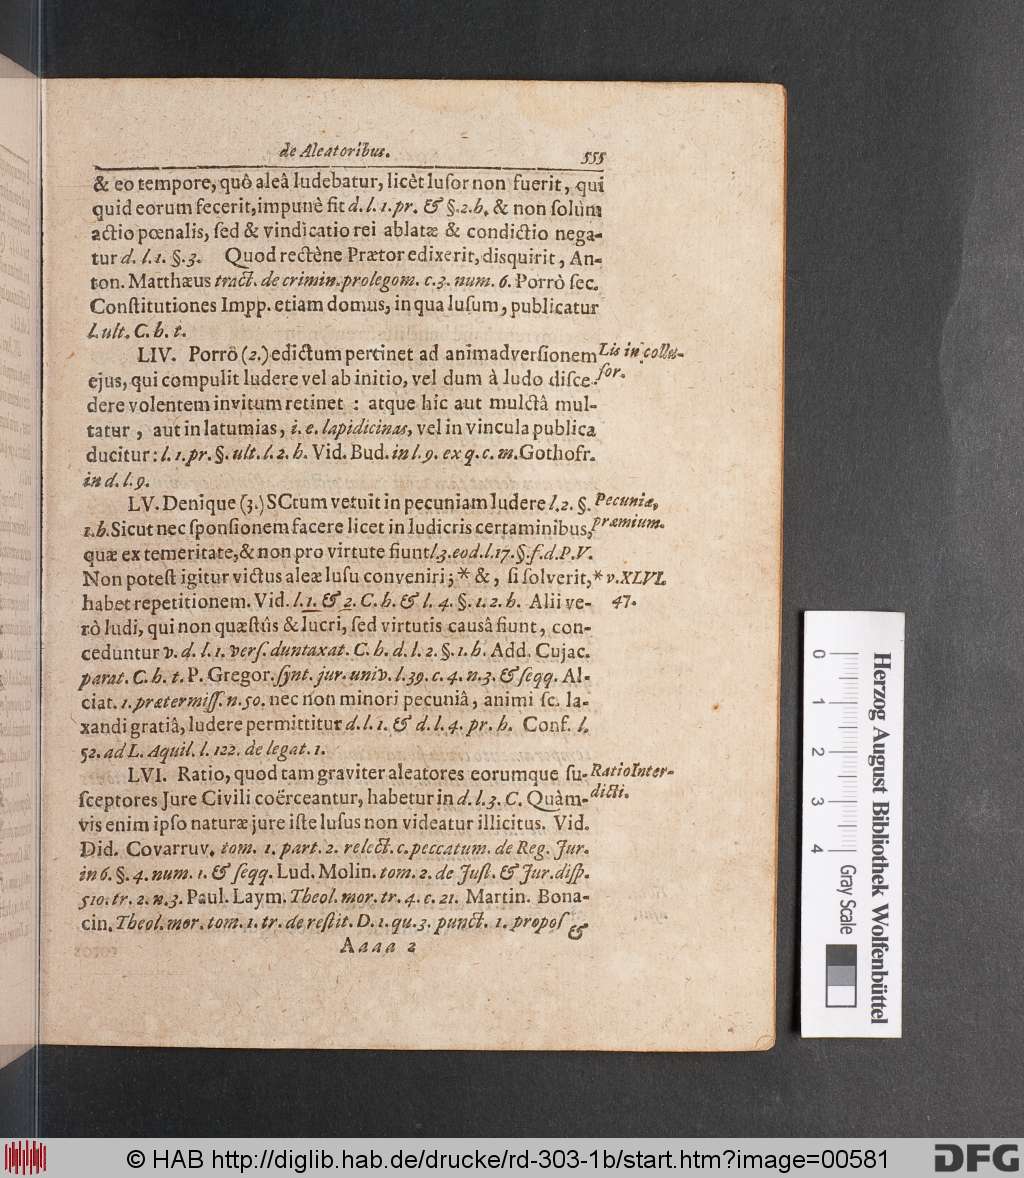 de Aleatoribus. 555
& eo tempore, quô aleâ ludebatur, licèt luſor non fuerit, qui
quid eorum fecerit, impunè fit d. l. 1. pr. & §. 2. h. & non ſolùm
actio pœnalis, ſed & vindicatio rei ablatæ & condictio nega-
tur d. l. 1. §. 3. Quod rectène Prætor edixerit, diſquirit, An-
ton. Matthæus tract. de crimin. prolegom. c. 3. num. 6. Porrò ſec.
Conſtitutiones Impp. etiam domus, in qua luſum, publicatur
l. ult. C. h. t.
LIV. Porrò (2.) edictum pertinet ad animadverſionem Lis in colluſ-
ejus, qui compulit ludere vel ab initio, vel dum à ludo diſce- ſor.
dere volentem invitum retinet : atque hic aut mulctâ mul-
tatur , aut in latumias, i. e. lapidicinas, vel in vincula publica
ducitur : l. 1. pr. §. ult. l. 2. h. Vid. Bud. in l. 9. ex q. c. m. Gothofr.
in d. l. 9.
LV. Denique (3.) SCtum vetuit in pecuniam ludere l. 2. §. Pecuniæ,
1. h. Sicut nec ſponſionem facere licet in ludicris certaminibus, præmium.
quæ ex temeritate, & non pro virtute fiunt l. 3. eod. l. 17. §. f. d. P. V.
Non poteſt igitur victus aleæ luſu conveniri ; * & , ſi ſolverit, * v. XLVI.
habet repetitionem. Vid. l. 1. & 2. C. h. & l. 4. §. 1. 2. h. Alii ve- 47.
rò ludi, qui non quæſtûs & lucri, ſed virtutis causâ fiunt, con-
ceduntur v. d. l. 1. verſ. duntaxat. C. h. d. l. 2. §. 1. h. Add. Cujac.
parat. C. h. t. P. Gregor. ſynt. jur. univ. l. 39. c. 4. n. 3. & ſeqq. Al-
ciat. 1. prætermiſſ. n. 50. nec non minori pecuniâ, animi ſc. la-
xandi gratiâ, ludere permittitur d. l. 1. & d. l. 4. pr. h. Conf. l.
52. ad L. Aquil. l. 122. de legat. 1.
LVI. Ratio, quod tam graviter aleatores eorumque ſu- Ratio Inter-
ſceptores Jure Civili coërceantur, habetur in d. l. 3. C. Quàm- dicti.
vis enim ipſo naturæ jure iſte luſus non videatur illicitus. Vid.
Did. Covarruv. tom. 1. part. 2. relect. c. peccatum. de Reg. Jur.
in 6. §. 4. num. 1. & ſeqq. Lud. Molin. tom. 2. de Juſt. & Jur. diſp.
510. tr. 2. n. 3. Paul. Laym. Theol. mor. tr. 4. c. 21. Martin. Bona-
cin. Theol. mor. tom. 1. tr. de reſtit. D. 1. qu. 3. punct. 1. propoſ
Aaaa 2 &
0 1 2 3 4
Gray Scale
Herzog August Bibliothek Wolfenbüttel
© HAB http://diglib.hab.de/drucke/rd-303-1b/start.htm?image=00581
DFG